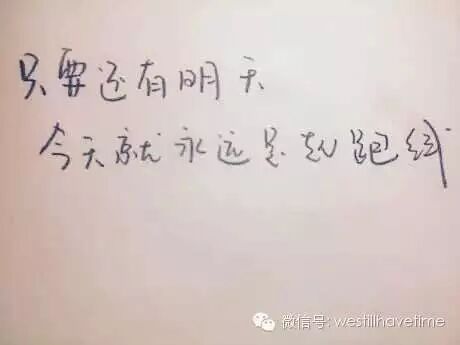 只要还有明天
今天就永远是起跑线
微信号: westillhavetime